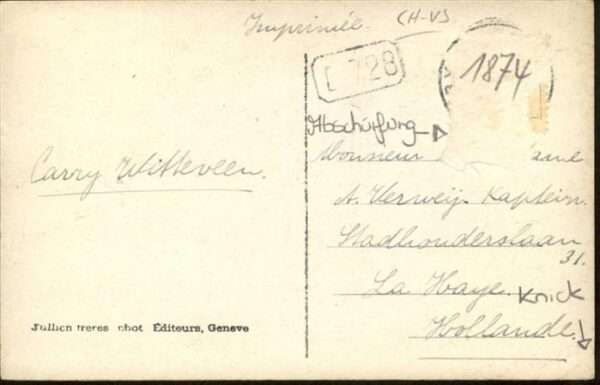 Imprimée.
CH-VS
E 728
1874
Abschürfung
Monsieur
A. Verweij. Kaptein.
Stadhouderslaan
31.
La Haye.
Knick
Hollande.
Carry Witteveen.
Jullien freres phot Éditeurs, Geneve